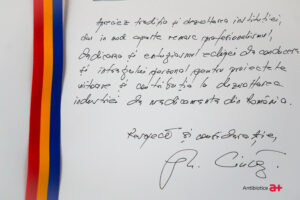 Apreciez tradiția și dezvoltarea instituției,
dar în mod aparte remarc profesionalismul,
dedicarea și entuziasmul echipei de conducere
și întregului personal pentru proiectele
viitoare și contribuția la dezvoltarea
industriei de medicamente din România.
Respect și considerație,
Gh.
Antibiotice a+